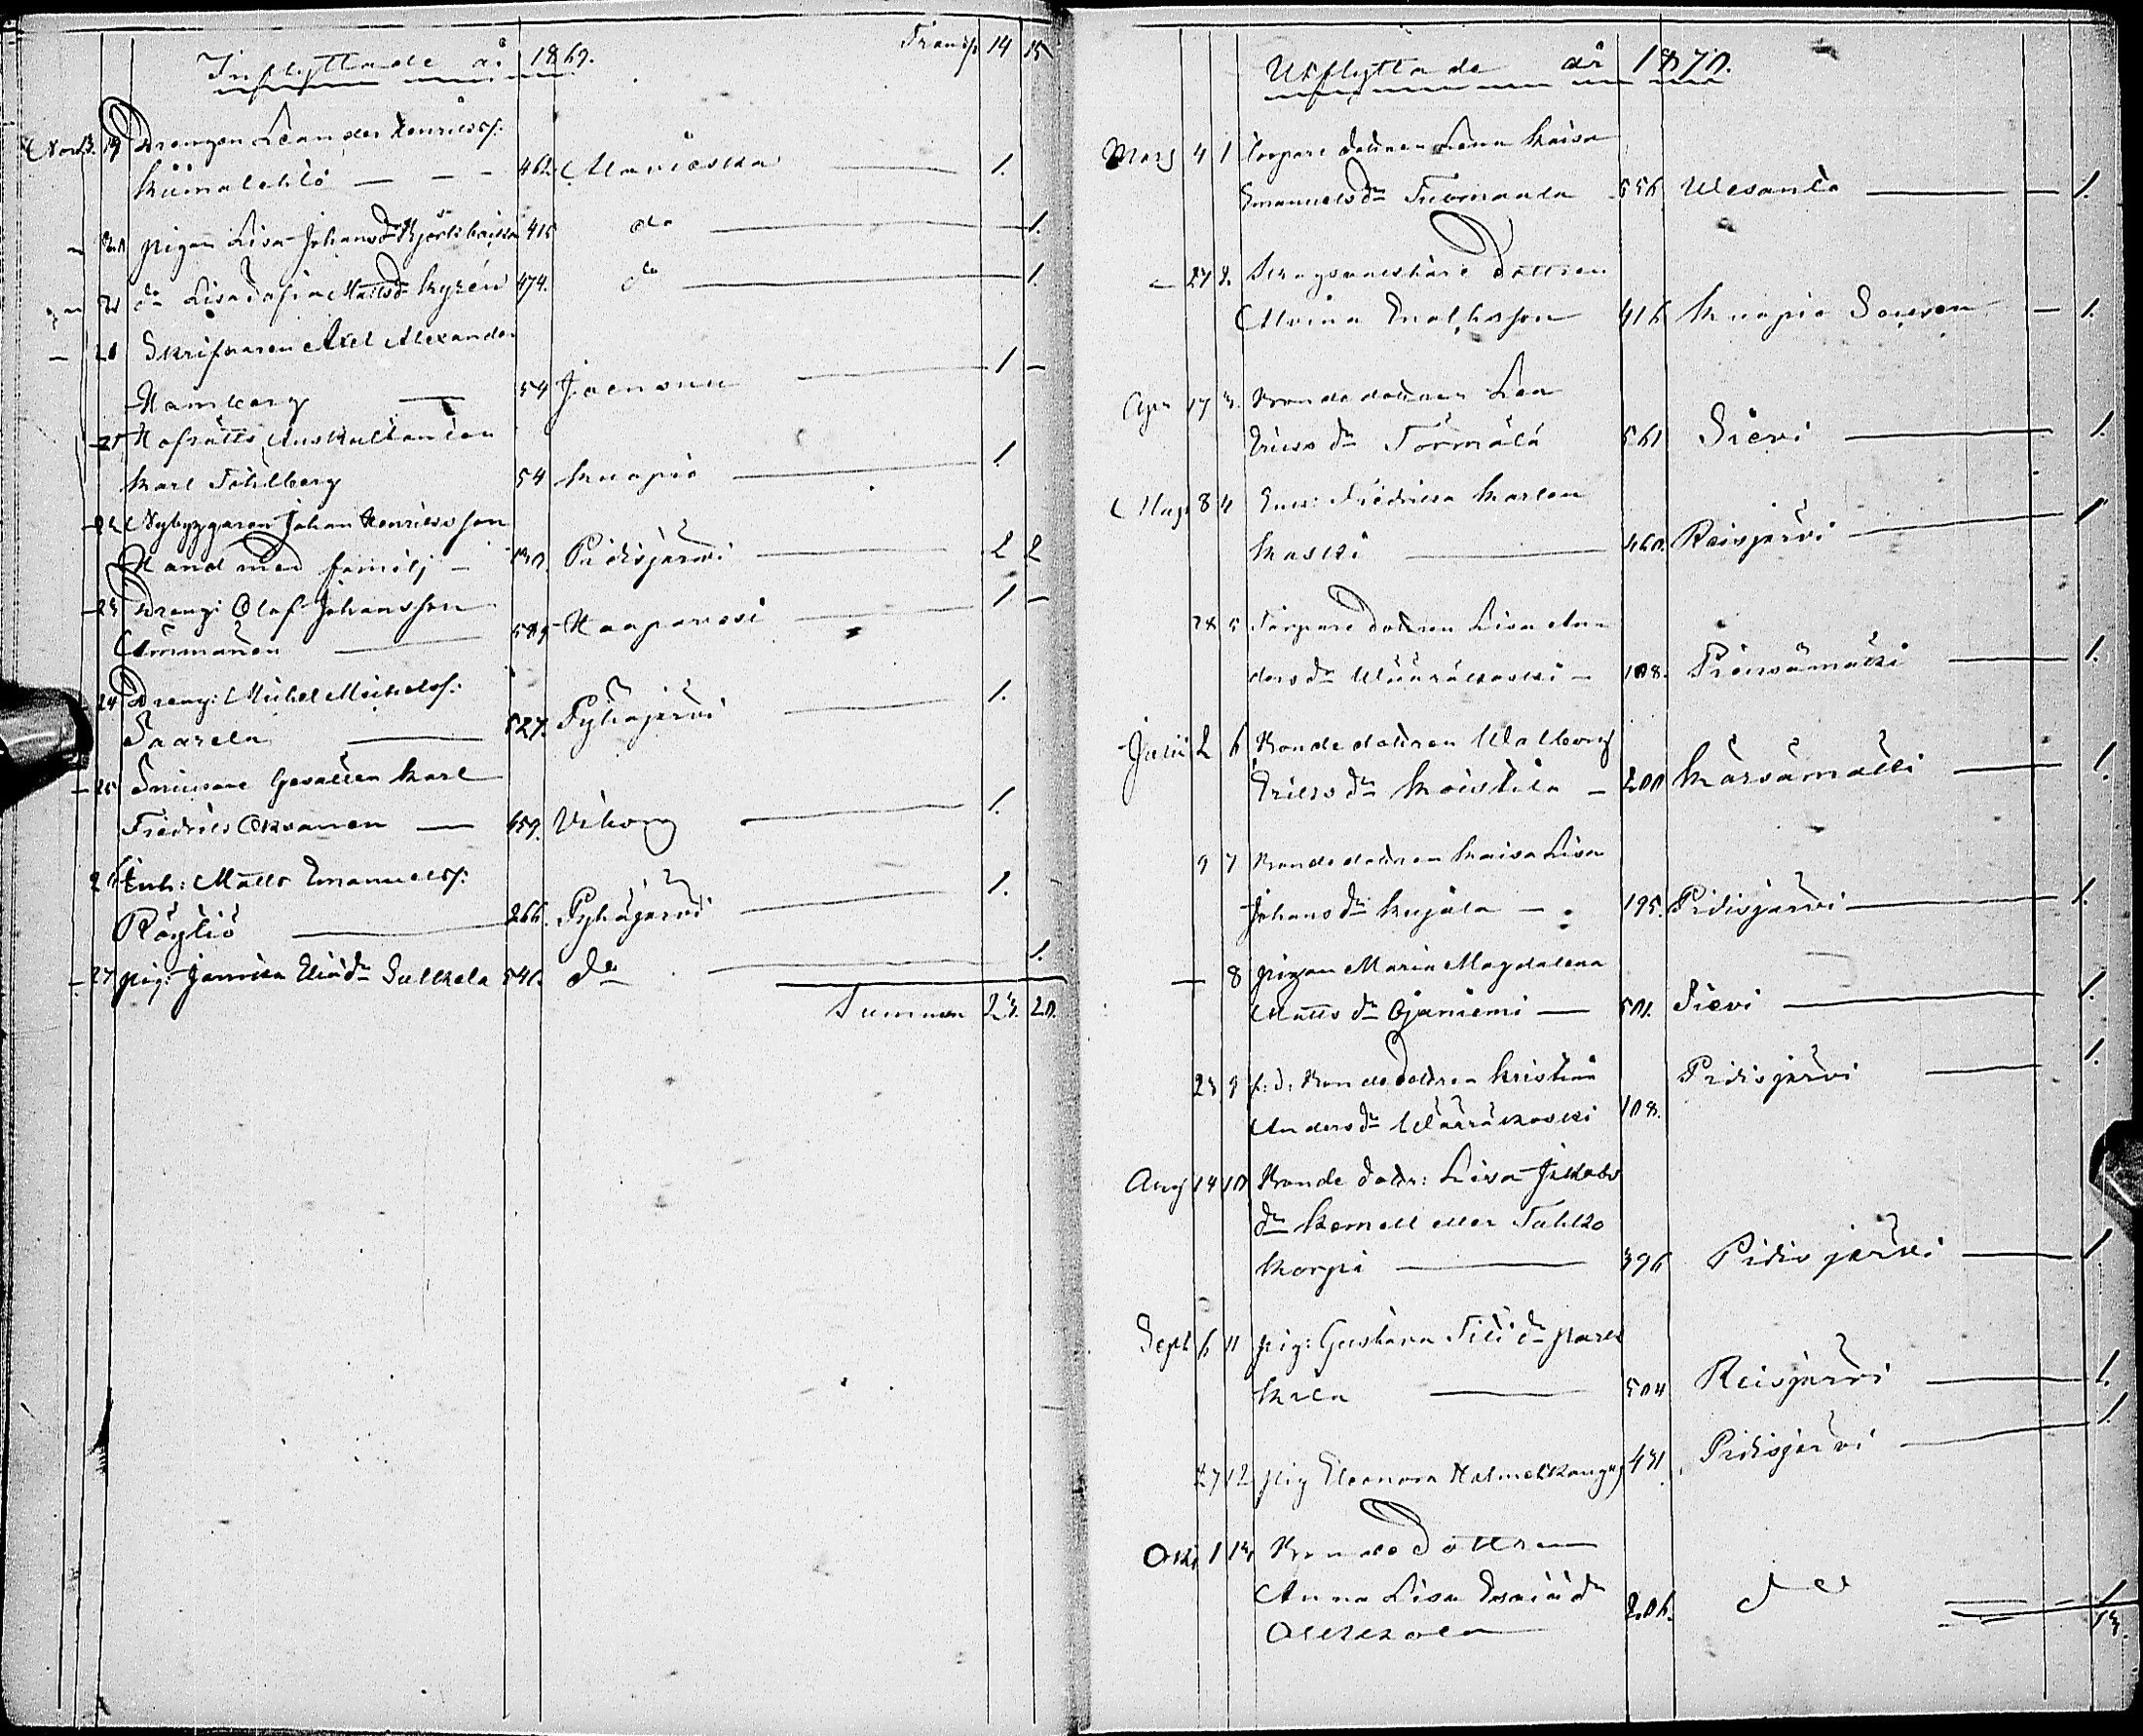 Inflyttade år 1869. Transp 14 15
Nov. 3. 19 Drengen Leander Henrikss:
Kiimalehto — — - 462. Maaninka — 1.
20 pigan Lisa Johansdr Björkbacka 415 do — 1.
21 do Lisa Sofia Mattsdr Kyrén 474. do — 1.
21 Skrifvaren Axel Alexander
Hamberg — 54 Joensuu — 1 —
21 Hofrätts Auskultanten
Karl Fahlberg 54 Kuopio — 1.
22 Nybyggaren Johan Henriksson
Hand med familj — Pidisjärvi — 2 2
23 Dreng: Olof Johansson
589 Haapavesi — 1 —
24 Dreng: Mickel Mickelss:
Saarela — 527. Pyhäjärvi — 1.
25 Snickare Gesällen Karl
Fredrik Oksanen — 459. Viborg — 1.
26 Inh: Matts Emanuelss:
Röyliö — 266. Pyhäjärvi — 1.
27 pig: Jannika Eliædr Sulkala 541. do — 1.
Summa 23. 20.
Utflyttade år 1870.
Mars 4 1 Torpare dottren Lena Kaisa
Emanuelsdr Tuomaala 556 Wesanto — 1.
— 27 2. dottren
Alvina Enathsson 416 Kuopio Socken — 1.
Apr 17 3. Bonde dottren Lea
Ericsdr Törmälä 561 Sievi — 1.
Maj 8 4 Enk: Fredrika Karlsn
Kaski — 460. Reisjärvi — 1
28 5 Torpare dottren Lisa An-
dersdr Wääräkoski — 108. Piensämäki — 1.
Julii 2 6 Bonde dottren Walborg
Ericsdr Koistila — 200 Kärsämäki — 1.
9 7 Bonde dottren Kaisa Lisa
Johansdr Kujala — 195. Pidisjärvi — 1.
— 8 pigan Maria Magdalena
Mattsdr Ojaniemi — 501. Sievi — 1.
23 9 f: d: Bonde dottren Kristina
Andersdr Wääräkoski 108. Pidisjärvi — 1.
Aug 14 10 Bonde dottr: Lisa Jakobs
dr Kemell eller Tahko
Korpi — 396 Pidisjärvi — 1
Sept 6 11 pig: Gustava
504 Reisjärvi — 1.
27 12 pig Eleonora Halmetkangas 431 Pidisjärvi — 1
Okt 1 13 Bonde Dottren
Anna Lisa Esaiædr
206. do — 1
13.